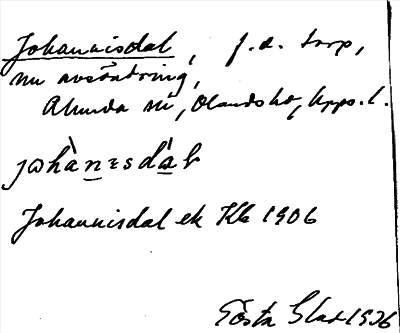 Johannisdal, f.d. torp,
nu avsöndring,
Alunda sn, Olands hd, Upps. l.
johànɪsdál
Johannisdal ek Kb 1906
Gösta 1936